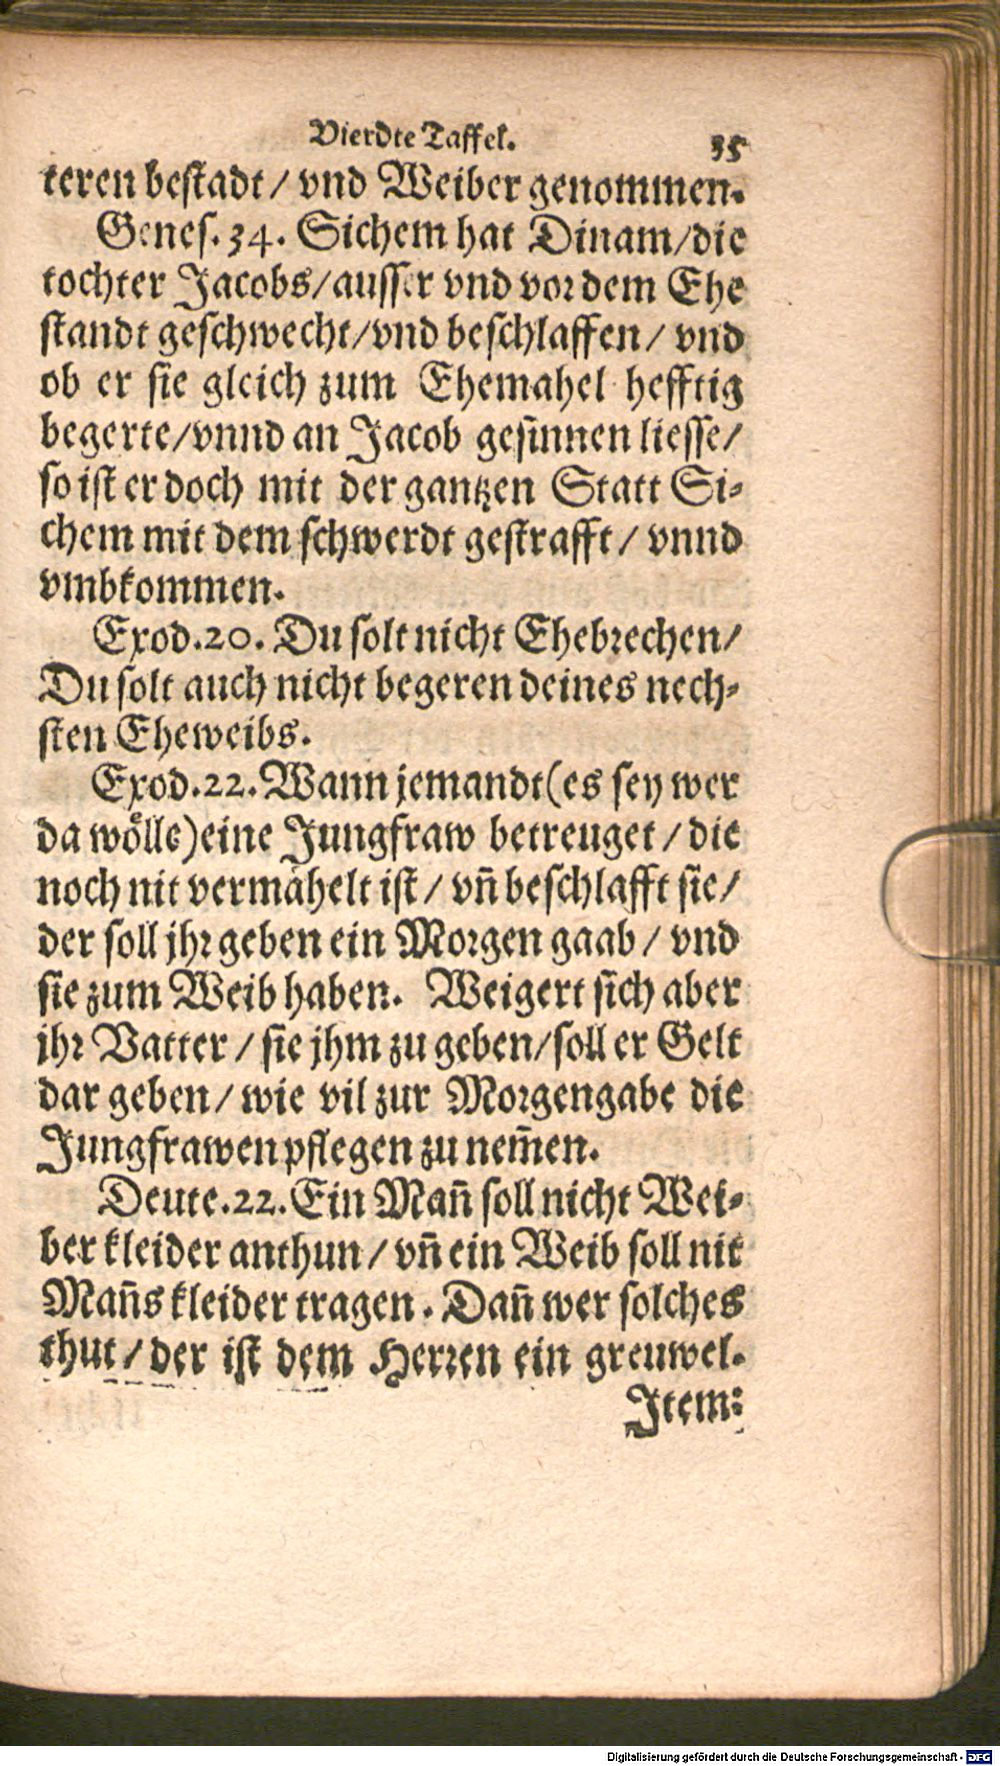 Vierdte Taffel. 35
teren bestadt / vnd Weiber genommen.
Genes. 34. Sichem hat Dinam/die
tochter Jacobs/ausser vnd vor dem Ehe
standt geschwecht/vnd beschlaffen / vnd
ob er sie gleich zum Ehemahel hefftig
begerte/vnnd an Jacob gesinnen liesse/
so ist er doch mit der gantzen Statt Si-
chem mit dem schwerdt gestrafft / vnnd
vmbkommen.
Exod. 20. Du solt nicht Ehebrechen/
Du solt auch nicht begeren deines nech-
sten Eheweibs.
Exod. 22. Wann jemandt(es sey wer
da wölle)eine Jungfraw betreuget / die
noch nit vermähelt ist / vñ beschlafft sie/
der soll jhr geben ein Morgen gaab / vnd
sie zum Weib haben. Weigert sich aber
jhr Vatter / sie jhm zu geben/soll er Gelt
dar geben / wie vil zur Morgengabe die
Jungfrawen pflegen zu nem̃en.
Deute. 22. Ein Mañ soll nicht Wei-
ber kleider anthun / vñ ein Weib soll nit
Mañs kleider tragen. Dañ wer solches
thut / der ist dem Herren ein greuwel.
Item:
Digitalisierung gefördert durch die Deutsche Forschungsgemeinschaft - DFG